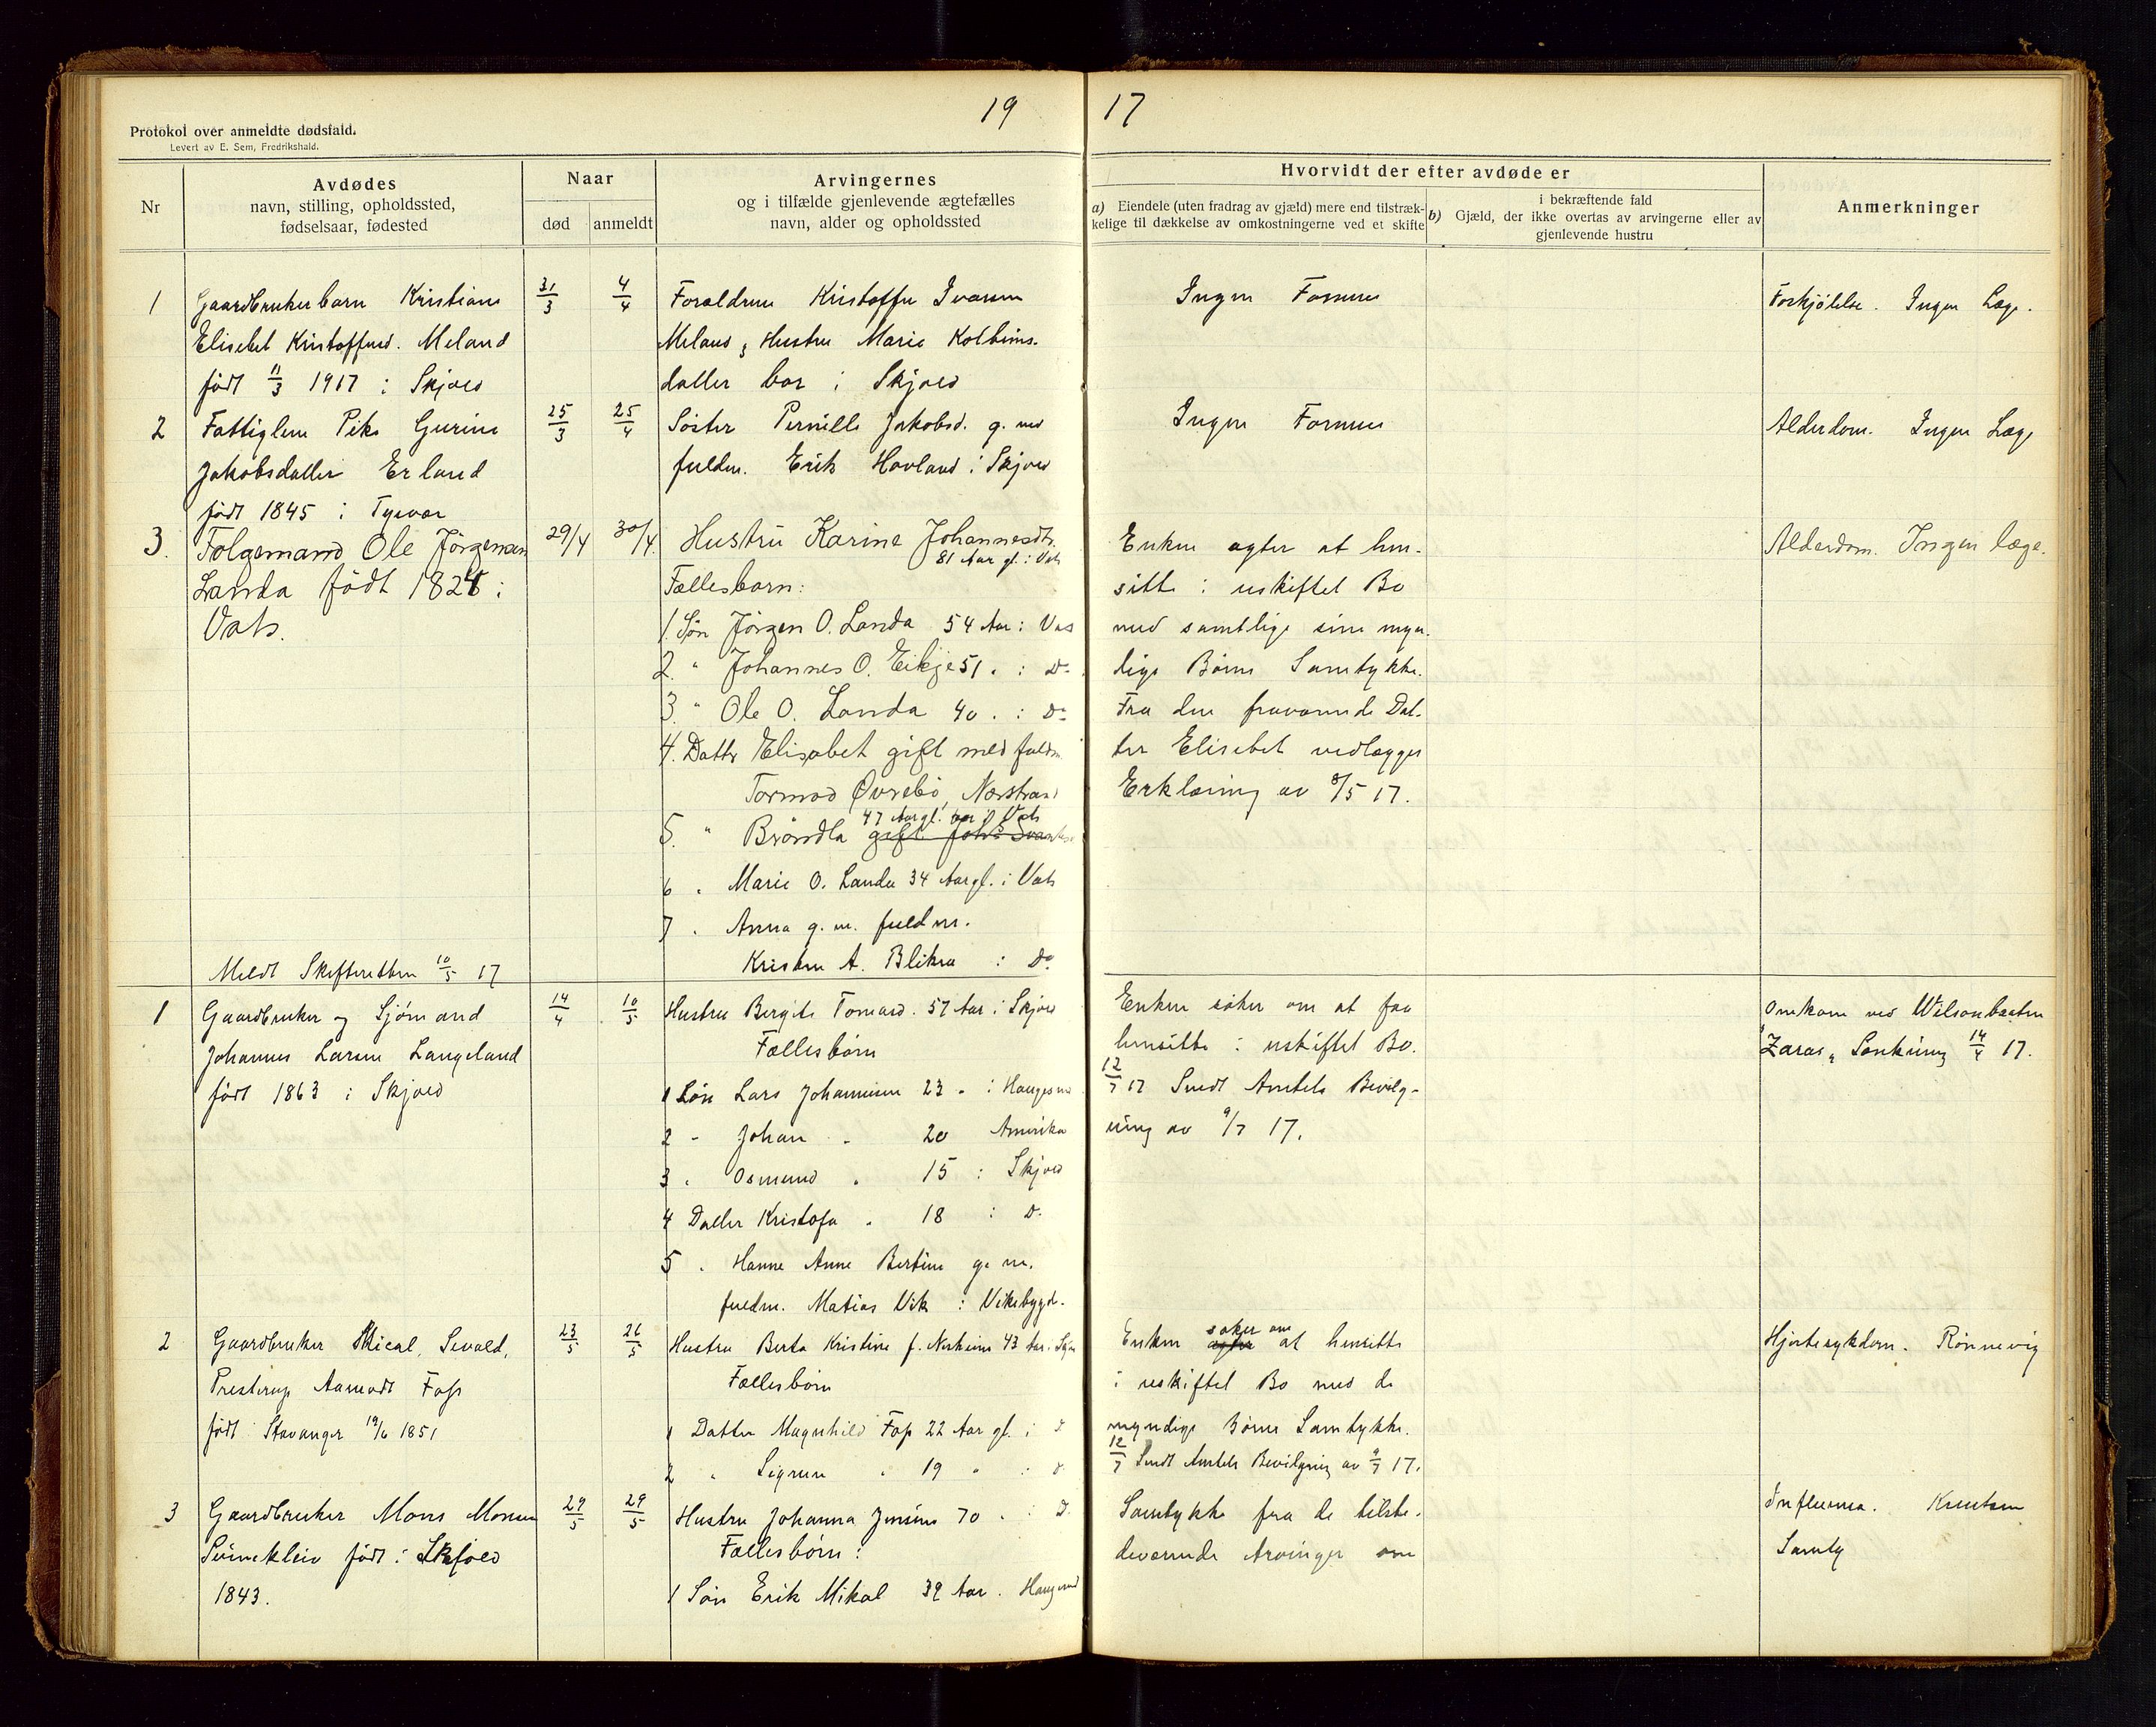 19 17
Protokol over anmeldte dødsfald.
Levert av E. Sem, Fredrikshald.
Nr
Avdødes
navn, stilling, opholdssted,
fødselsaar, fødested
Naar
død
anmeldt
Arvingernes
og i tilfælde gjenlevende ægtefælles
navn, alder og opholdssted
Hvorvidt der efter avdøde er
a) Eiendele (uten fradrag av gjæld) mere end tilstræk-
kelige til dækkelse av omkostningerne ved et skifte
i bekræftende fald
b) Gjæld, der ikke overtas av arvingerne eller av
gjenlevende hustru
Anmerkninger
1
Gaardbrukerbarn Kristiane
Elisebet Kristoffersd. Meland
født 11/3 1917 i Skjold
31/3
4/4
Forældrene Kristoffer Ivarsen
Meland & Hustru Marie Kolbeins-
datter bor i Skjold
Ingen Formue
Forkjølelse. Ingen Læge.
2
Fattiglem Pike Gurine
Jakobsdatter Erland
født 1845 i Tysvær
25/3
25/4
Søster Pernille Jakobsd. g. med
fuldm. Erik Hovland i Skjold
Ingen Formue
Alderdom. Ingen Læge
3.
Folgemand Ole Jörgensen
Landa födt 1824 i
Vats.
29/4
30/4
Hustru Karine Johannesdtr.
81 Aar gl. i Vats
Fællesbarn:
1. Sön Jörgen O. Landa 54 Aar i Vats
2. " Johannes O. Eikje 51 " i Do
3. " Ole O. Landa 40 " i Do
4. Dattr Elisabet gift med fuldm.
Tormod Øvrebö, Nærstrand
47 Aar gl. bor i Vats
5. " Bröndla gift Johs Svan
6 " Marie O. Landa 34 Aar gl. i Vats
7 " Anna g. m. fuldm.
Kristen A. Blikra i Do
Enken agter at hen-
sitte i uskiftet Bo
med samtlige sine myn-
dige Børns Samtykke.
Fra den fraværende Dat-
ter Elisebet vedlægges
Erklæring av 8/5 17.
Alderdom. Ingen læge.
Meldt Skifteretten 10/5 17
1
Gaardbruker og Sjømand
Johannes Larsen Langeland
født 1863 i Skjold
14/4
10/5
Hustru Bergite Tomasd. 57 Aar i Skjold
Fællesbørn
1 Søn Lars Johannesen 23 " i Haugesund
2 " Johan " 20 Amerika
3 " Osmund " 15 i Skjold
4 Datter Kristofa " 18 i D.
5 " Hanne Anne Bertine g. m.
fuldm. Matias Vik i Vikebygd.
Enken søker om at faa
hensitte i uskiftet Bo.
12/7 17 Sendt Amtets Bevilg-
ning av 9/7 17.
Omkom ved Wilsonbaaten
"Zaras" Sænkning 14/4 17.
2
Gaardbruker Mical Sevald
Presterup Aamodt Foss
født i Stavanger 19/6 1851
23/5
26/5
Hustru Berta Kristine f. Norheim 43 Aar i Skjold
Fællesbørn
1 Datter Magnhild Foss 22 Aar gl. i d
2 " Sigrun " 19 " i d.
Enken agter søker om at hensitte
i uskiftet Bo med de
myndige Børns Samtykke.
12/7 Sendt Amtets Bevilgning av 9/7 17.
Hjertesykdom. Rønnevig
3
Gaardbruker Mons Monsen
født i Skjold
1843.
29/5
29/5
Hustru Johanna Jensine 70 " i D.
Fællesbørn:
1 Søn Erik Mikal 39 Aar. Haugesund
Samtykke fra de tilste-
deværende Arvinger om
Influensa. Knutsen